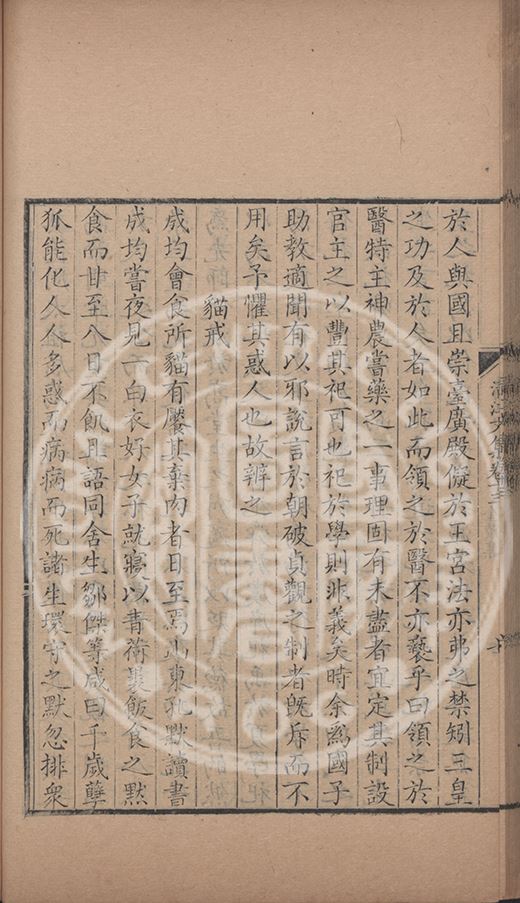 於人與國且崇臺廣殿儗於王宮法亦弗之禁矧三皇
之功及於人者如此而領之於醫不亦褻乎曰領之於
醫特主神農嘗藥之一事理固有未盡者宜定其制設
官主之以豐其祀可也祀於學則非義矣時余爲國子
助教適聞有以邪說言於朝破貞觀之制者既斥而不
用矣予懼其惑人也故辨之
貓戒
成均會食所貓有饜其棄肉者日至焉山東孔默讀書
成均嘗夜見一白衣好女子就寢以青荷裹飯食之默
食而甘至八日不飢且語同舍生鄒傑等咸曰千歲孽
狐能化人人多惑而病病而死諸生環守之默忽排衆